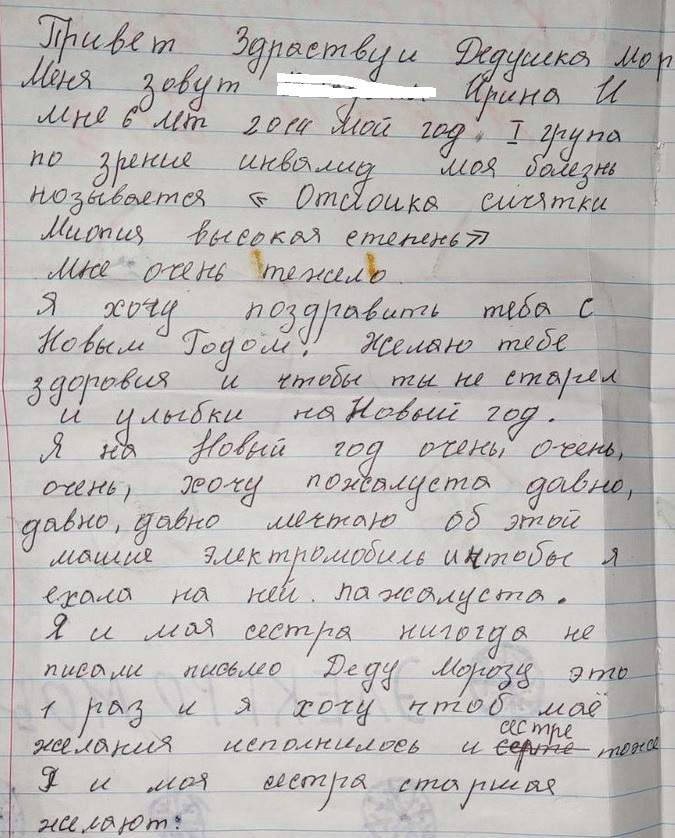 Привет Здраствуй Дедушка Мор
Меня зовут Ирина И
мне 6 лет 2014 мой год. I група
по зрение инвалид моя болезнь
називается « Отслоика сичятки
Миопия высокая степень»
мне очень тежело
Я хочу поздравить тебя с
Новым Годом. Желаю тебе
здоровия и чтобы ты не старел
и улыбки на Новый год.
Я на Новый год очень, очень,
очень, хочу пожалуста давно,
давно, давно мечтаю об этой
машие электромобиль и чтобы я
ехала на ней. пажалуста.
Я и моя сестра нигогда не
писали письмо Деду Морозу это
1 раз и я хочу чтоб маё
желания исполнилось и сестре тоже
Я и моя сестра старшая
желают: